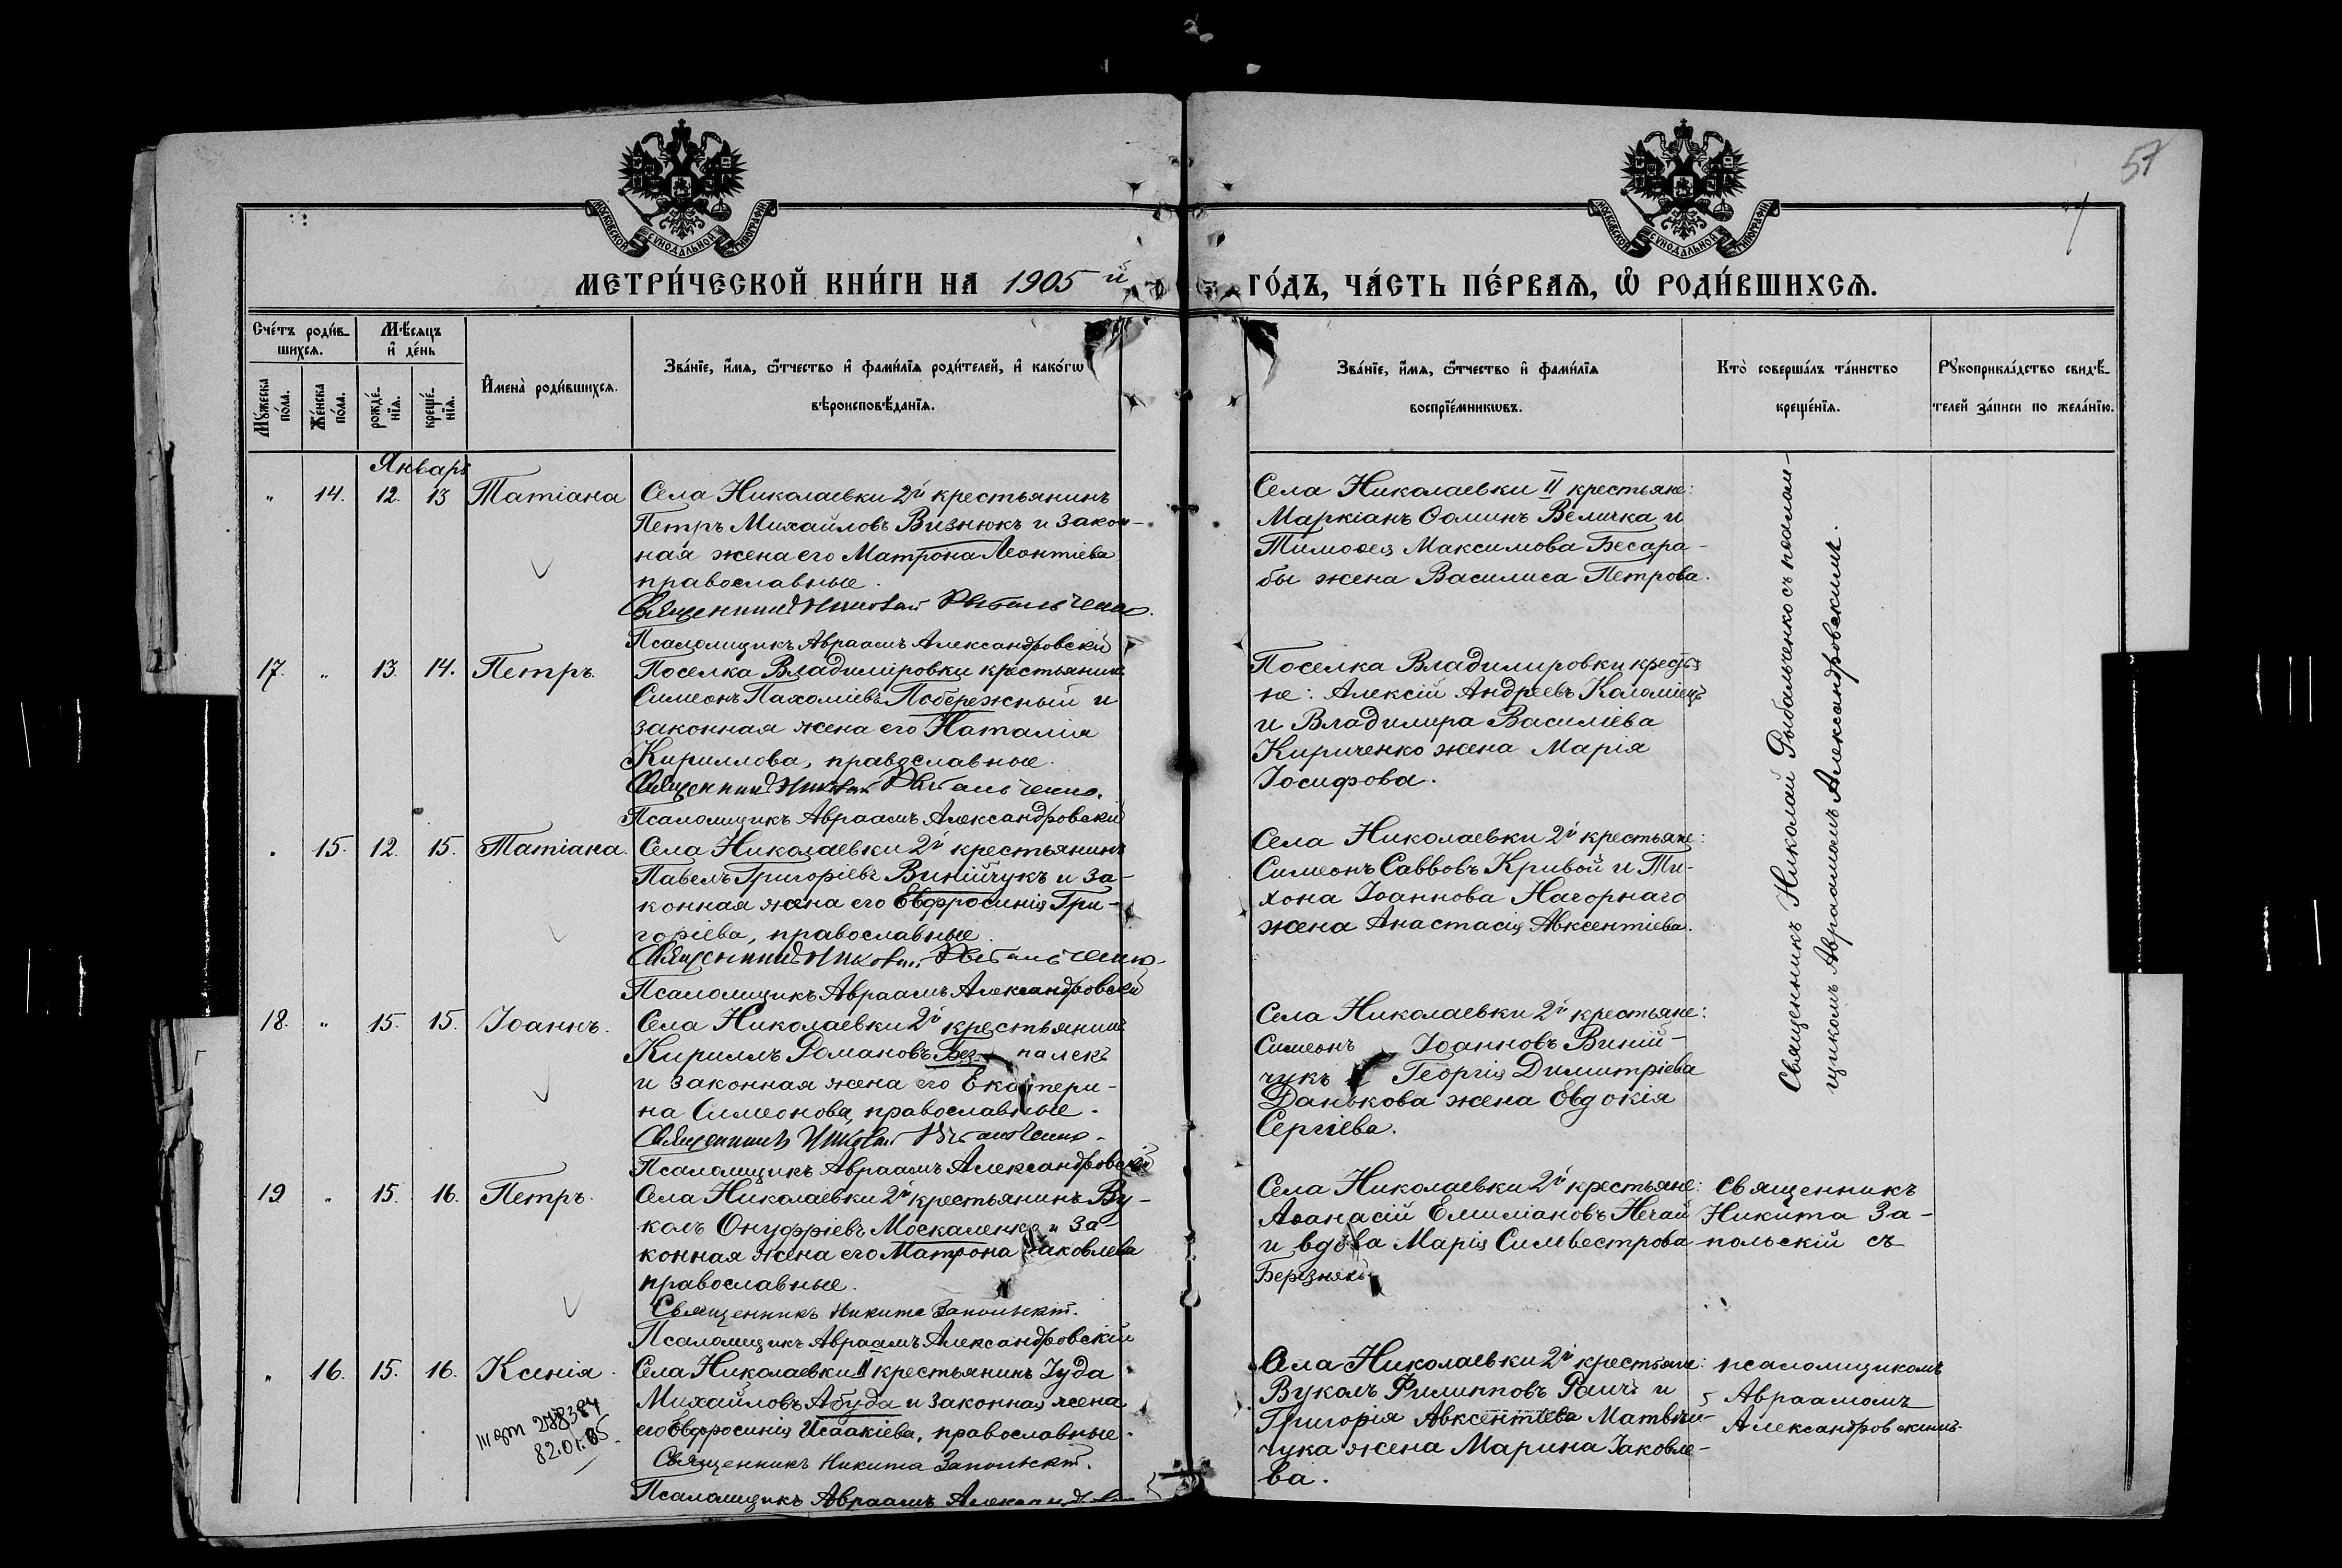 57
МОСКОВСКОЙ СѴНОДАЛЬНОЙ ТИПОГРАФІИ
МОСКОВСКОЙ СѴНОДАЛЬНОЙ ТИПОГРАФІИ
МЕТРИ́ЧЕСКОЙ КНИ́ГИ НА 1905 й ГО́ДЪ, ЧА́СТЬ ПЕ́РВАѦ, Ѽ РОДИ́ВШИХСѦ.
Сче́тъ роди́в-
шихсѧ.
Мꙋ́жеска по́ла.
Же́нска по́ла.
Мѣ́сяцъ
и҆ де́нь
рожде́-
нїѧ.
креще́-
нїѧ.
И҆мена̀ роди́вшихсѧ.
Зва́нїе, и҆́мѧ, ѻ҆́тчество и҆ фами́лїѧ роди́телей, и҆ како́гѡ
вѣроисповѣ́данїѧ.
Зва́нїе, и҆́мѧ, ѻ҆́тчество и҆ фами́лїѧ
воспрїе́мникѡвъ.
Кто̀ соверша́лъ та́инство
креще́нїѧ.
Рꙋкоприкла́дство свидѣ́-
телей за́писи по жела́нїю.
Январь
" 14. 12. 13 Татіана
Села Николаевки 2й крестьянинъ
Петръ Михайловъ Визнюкъ и закон-
ная жена его Матрона Леонтіева
православные.
Священникъ Николай Рыбальченко.
Псаломщикъ Авраамъ Александровскій
Села Николаевки II крестьяне:
Маркіанъ Ѳоминъ Величка и
Тимоѳея Максимова Бесара-
бы жена Василиса Петрова.
Священникъ Николай Рыбальченко съ псалом-
щикомъ Авраамомъ Александровскимъ.
17. " 13. 14. Петръ.
Поселка Владиміровки крестьянинъ
Симеонъ Пахоміевъ Побережный и
законная жена его Наталія
Кириллова, православные.
Священникъ Николай Рыбальченко.
Псаломщикъ Авраамъ Александровскій
Поселка Владимировки крестья
не: Алексій Андреевъ Коломіецъ
и Владимира Василіева
Кириченко жена Марія
Іосифова.
" 15. 12. 15. Татіана.
Села Николаевки 2й крестьянинъ
Павелъ Григоріевъ Винійчукъ и за-
конная жена его Евфросинія Гри-
горіева, православные.
Священникъ Николай Рыбальченко
Псаломщикъ Авраамъ Александровскій
Села Николаевки 2й крестьяне:
Симеонъ Саввовъ Кривой и Ти-
хона Іоаннова Нагорнаго
жена Анастасія Авксентіева.
18. " 15. 15. Іоаннъ.
Села Николаевки 2й крестьянинъ
Кириллъ Романовъ Без- палекъ
и законная жена его Екатери-
на Симеонова православные.
Священникъ Николай Рыбальченко.
Псаломщикъ Авраамъ Александровскій
Села Николаевки 2й крестьяне:
Симеонъ Іоанновъ Виній-
чукъ и Георгія Димитріева
Данькова жена Евдокія
Сергіева.
19 " 15. 16. Петръ.
Села Николаевки 2й крестьянинъ Ву-
колъ Онуфріевъ Москаленко и за-
конная жена его Матрона Іаковлева
православные.
Священникъ Никита Запольскій.
Псаломщикъ Авраамъ Александровскій
Села Николаевки 2й крестьяне:
Аѳанасій Емиліановъ Нечай
и вдова Марія Сильвестрова
Березнякъ
Священникъ
Никита За-
польскій съ
" 16. 15. 16. Ксенія.
Села Николаевки II крестьянинъ Іуда
Михайловъ Абуда и законная жена
его Евфросинія Исаакіева, православные.
Священникъ Никита Запольскій.
Псаломщикъ Авраамъ
Села Николаевки 2й крестьяне:
Вуколъ Филипповъ Раичъ и
Григорія Авксентіева Матвѣй-
чука жена Марина Іаковле-
ва.
псаломщикомъ
Авраамомъ
Александровскимъ